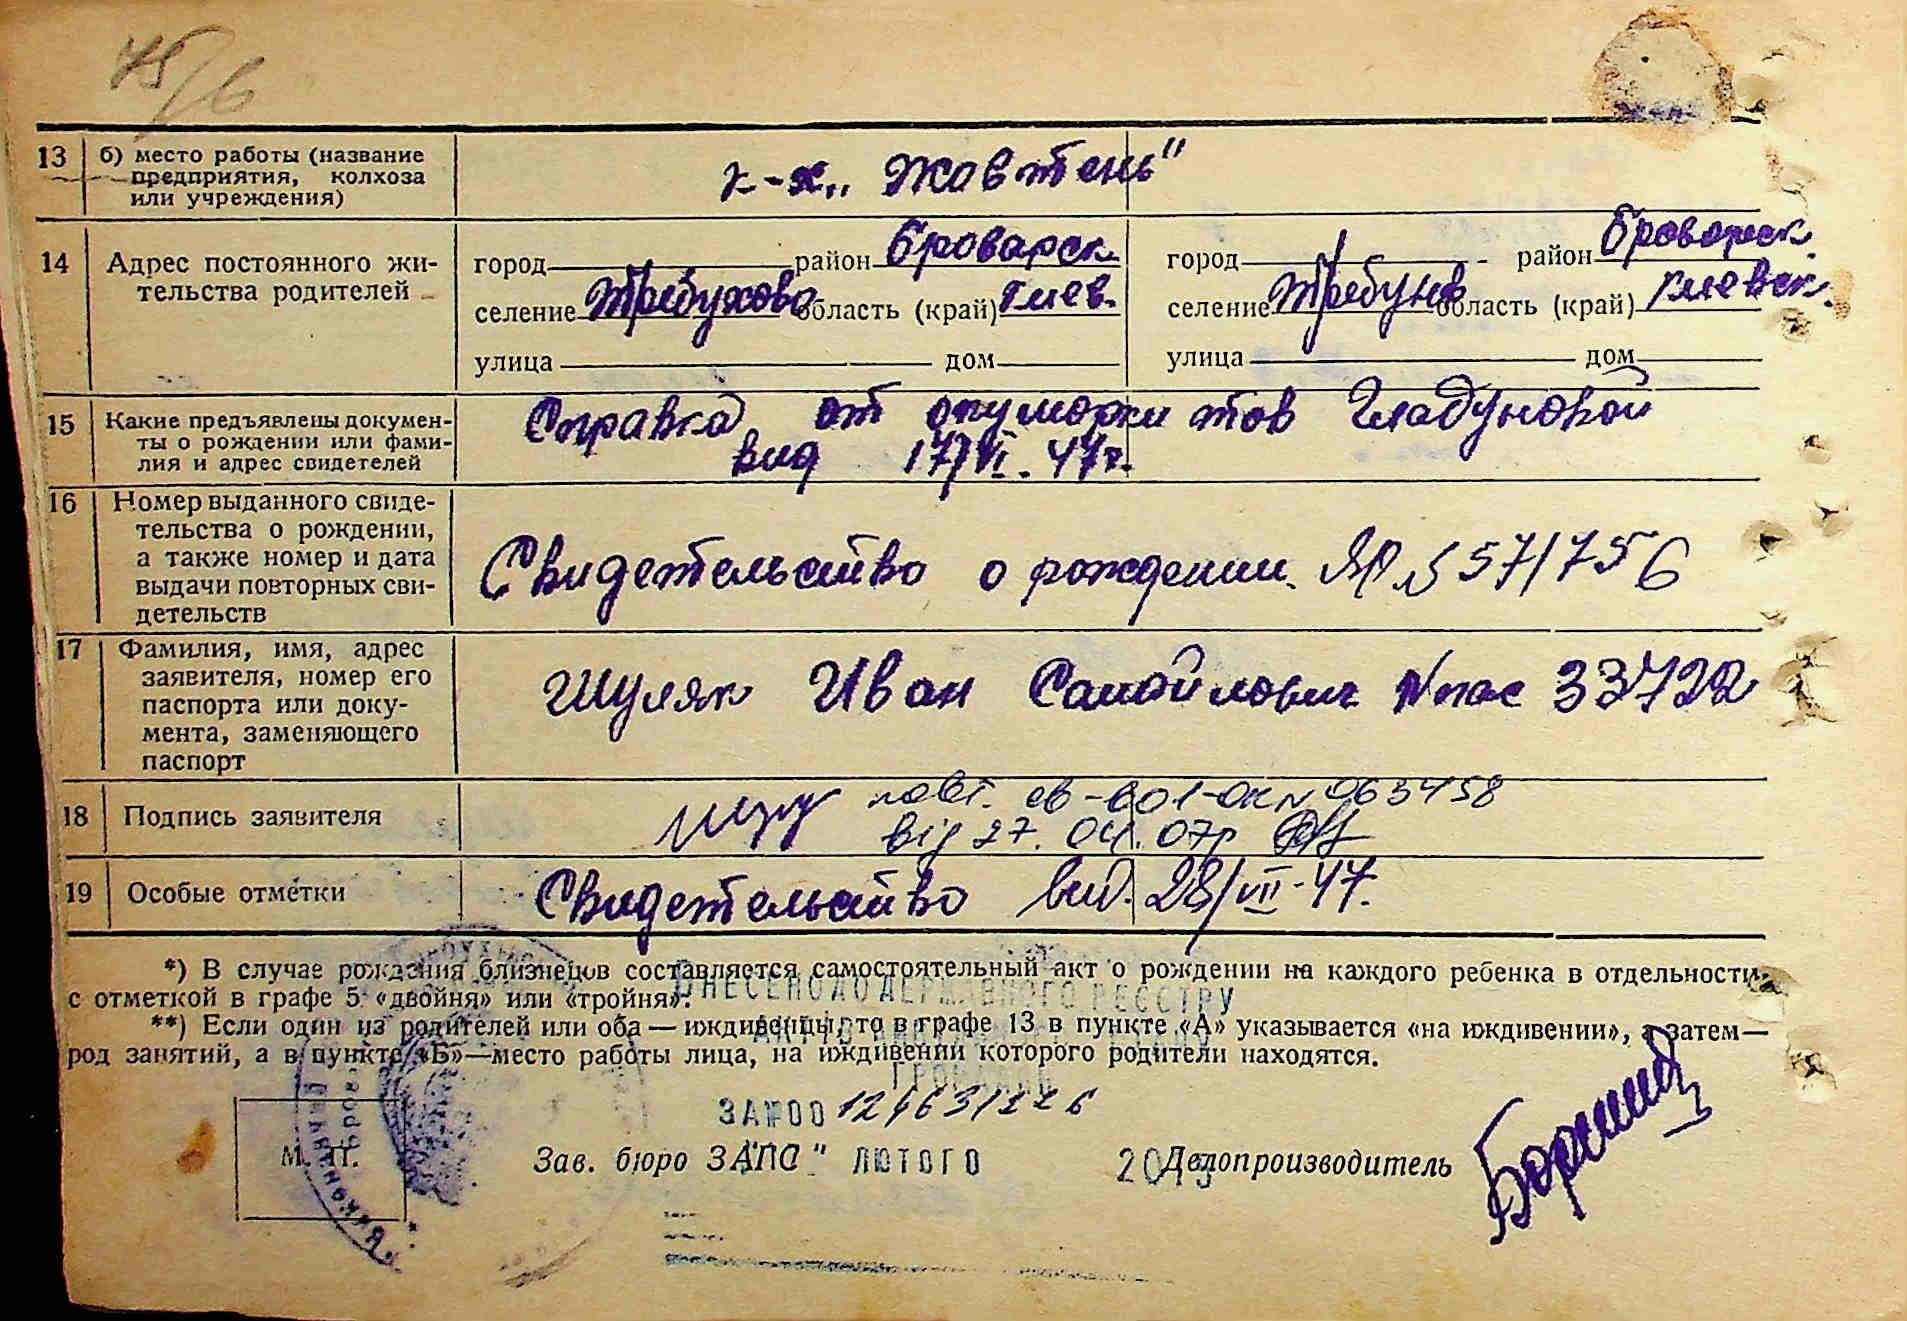 45/6
13 б) место работы (название
предприятия, колхоза
или учреждения)
к-х „Жовтень"
14 Адрес постоянного жи-
тельства родителей
город район Броварск. город район Броварск.
селение Требухово область (край) Киев. селение Требухов область (край) Киевск.
улица дом улица дом
15 Какие предъявлены докумен-
ты о рождении или фами-
лия и адрес свидетелей
Справка от акушорки тов Гладуновой
вид 17/VI. 47г.
16 Номер выданного свиде-
тельства о рождении,
а также номер и дата
выдачи повторных сви-
детельств
Свидетельство о рождении. № 571756
17 Фамилия, имя, адрес
заявителя, номер его
паспорта или доку-
мента, заменяющего
паспорт
Шуляк Иван Самойлович №пас 33722
18 Подпись заявителя
повт. св-во 1-ОК № 063458
від 27. 04. 07р
19 Особые отметки
Свидетельство вид. 28/VII-47.
*) В случае рождения близнецов составляется самостоятельный акт о рождении на каждого ребенка в отдельности
с отметкой в графе 5 «двойня» или «тройня».
ВНЕСЕНО ДО ДЕРЖАВНОГО РЕЄСТРУ
**) Если один из родителей или оба — иждивенцы, то в графе 13 в пункте «А» указывается «на иждивении», а затем—
АКТІВ ЦИВІЛЬНОГО СТАНУ
род занятий, а в пункте «Б»—место работы лица, на иждивении которого родители находятся.
ГРОМАДЯН
ЗА №00
М. П.
Зав. бюро ЗАГС " ЛЮТОГО 20 Делопроизводитель